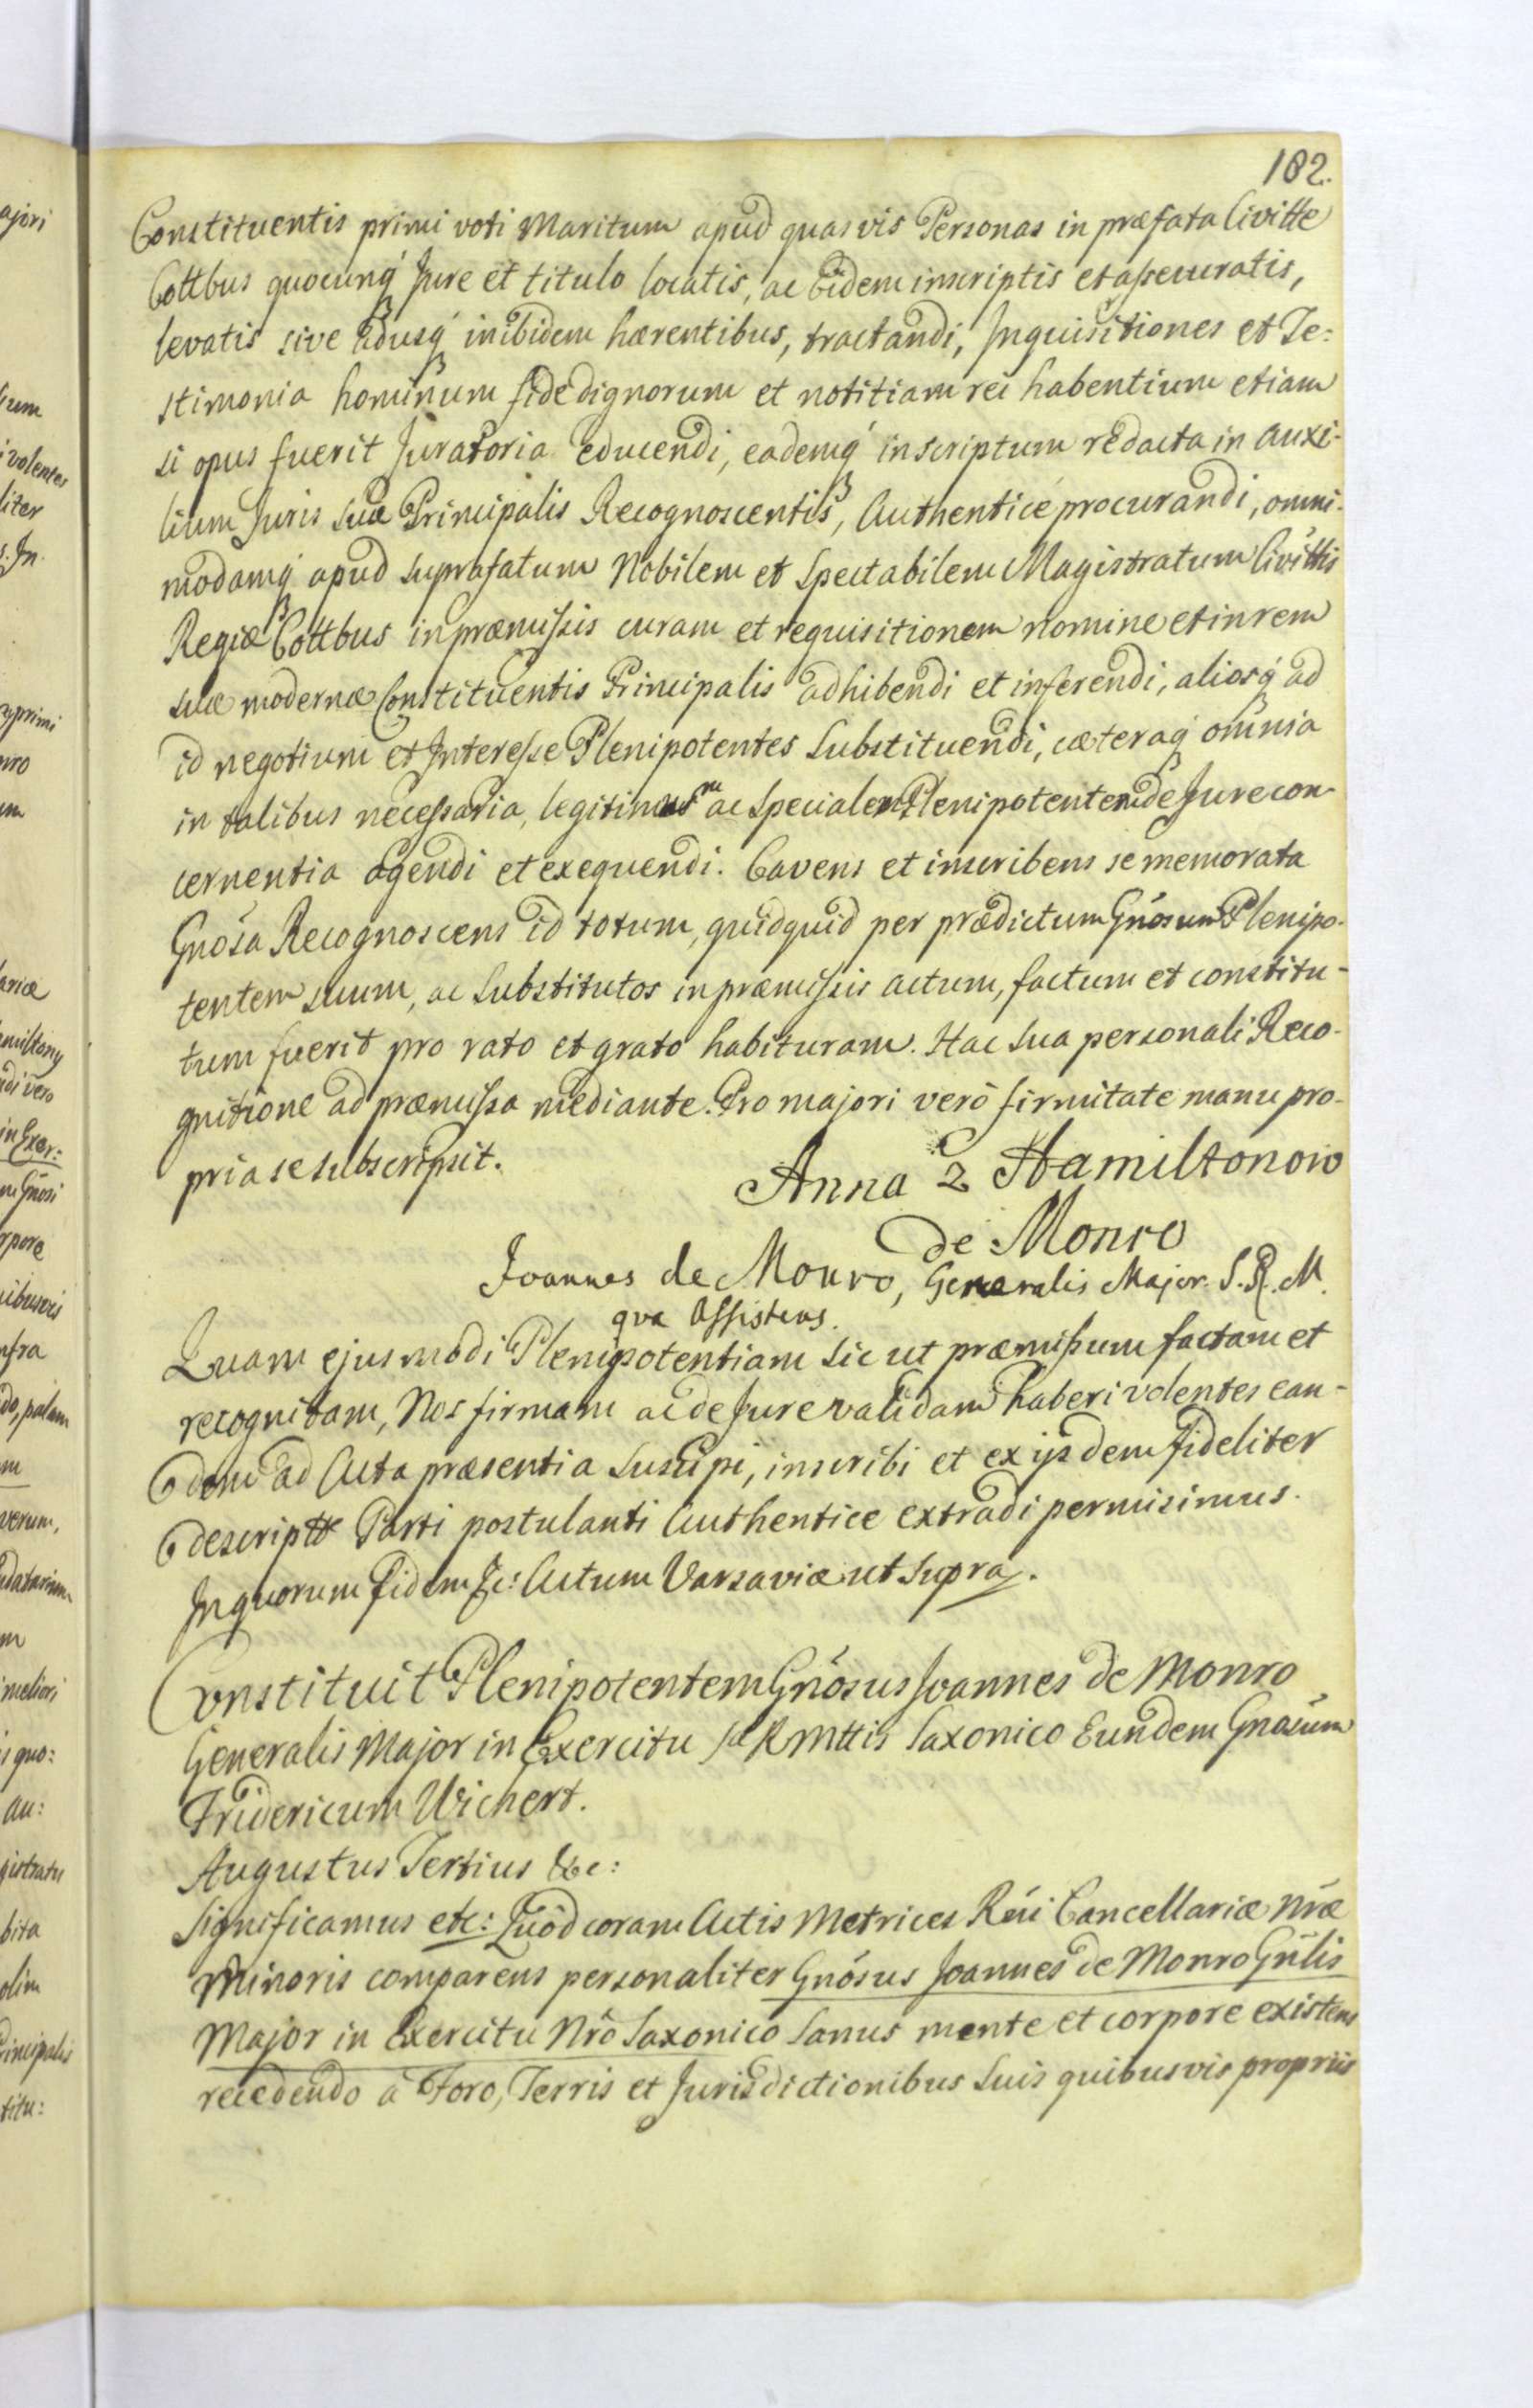 182.
Constituentis primi voti Maritum apud quasvis Personas in præfata Civitte
Cottbus quocunq́ Jure et titulo locatis, ac Eidem inscriptis et assecuratis,
levatis sive adusq́ inibidem hærentibus, tractandi, Inquisitiones et Te:
stimonia hominum fide dignorum et notitiam rei habentium etiam
si opus fuerit Juratoria educendi, eademq́ in scriptum redacta in auxi-
lium Juris Suæ Principalis Recognoscentis, Authentice procurandi, omni-
modamq́ apud suprafatum Nobilem et Spectabilem Magistratum Civittis
Regiæ Cottbus in præmissis curam et requisitionem nomine et in rem
suæ modernæ Constituentis Principalis adhibendi et inferendi, aliosq́ ad
id negotium et Interesse Plenipotentes Substituendi, cæteraq́ omnia
in talibus necessaria, legitimum ac Specialem Plenipotentem de Jure con-
cernentia agendi et exequendi. Cavens et inscribens se memorata
Gnosa Recognoscens id totum, quidquid per prædictum Gnosum Plenipo-
tentem suum, ac Substitutos in præmissis actum, factum et constitu-
tum fuerit pro rato et grato habituram. Hac Sua personali Reco-
gnitione ad præmissa mediante. Pro majori verò firmitate manu pro-
pria se subscripsit.
Anna z Hamiltonow
de Monro
Joannes de Monro, Generalis Major S. R. M.
qua Assistens.
Quam ejusmodi Plenipotentiam Sic ut præmissum factam et
recognitam, Nos firmam ac de Jure validam haberi volentes ean-
dem ad Acta præsentia Suscipi, inscribi et ex ijsdem fideliter
descriptt Parti postulanti Authentice extradi permisimus.
In quorum fidem &c: Actum Varsaviæ ut Supra.
Constituit Plenipotentem Gnosus Joannes de Monro
Generalis Major in Exercitu S R Mttis Saxonico Eundem Gnosum
Fridericum Wichert.
Augustus Tertius &c:
Significamus etc: Quòd coram Actis Metrices Rni Cancellariæ Nræ
Minoris comparens personaliter Gnosus Joannes de Monro Gnlis
Major in Exercitu Nro Saxonico Sanus mente et corpore existens
recedendo à Foro, Terris et Jurisdictionibus Suis quibusvis propriis